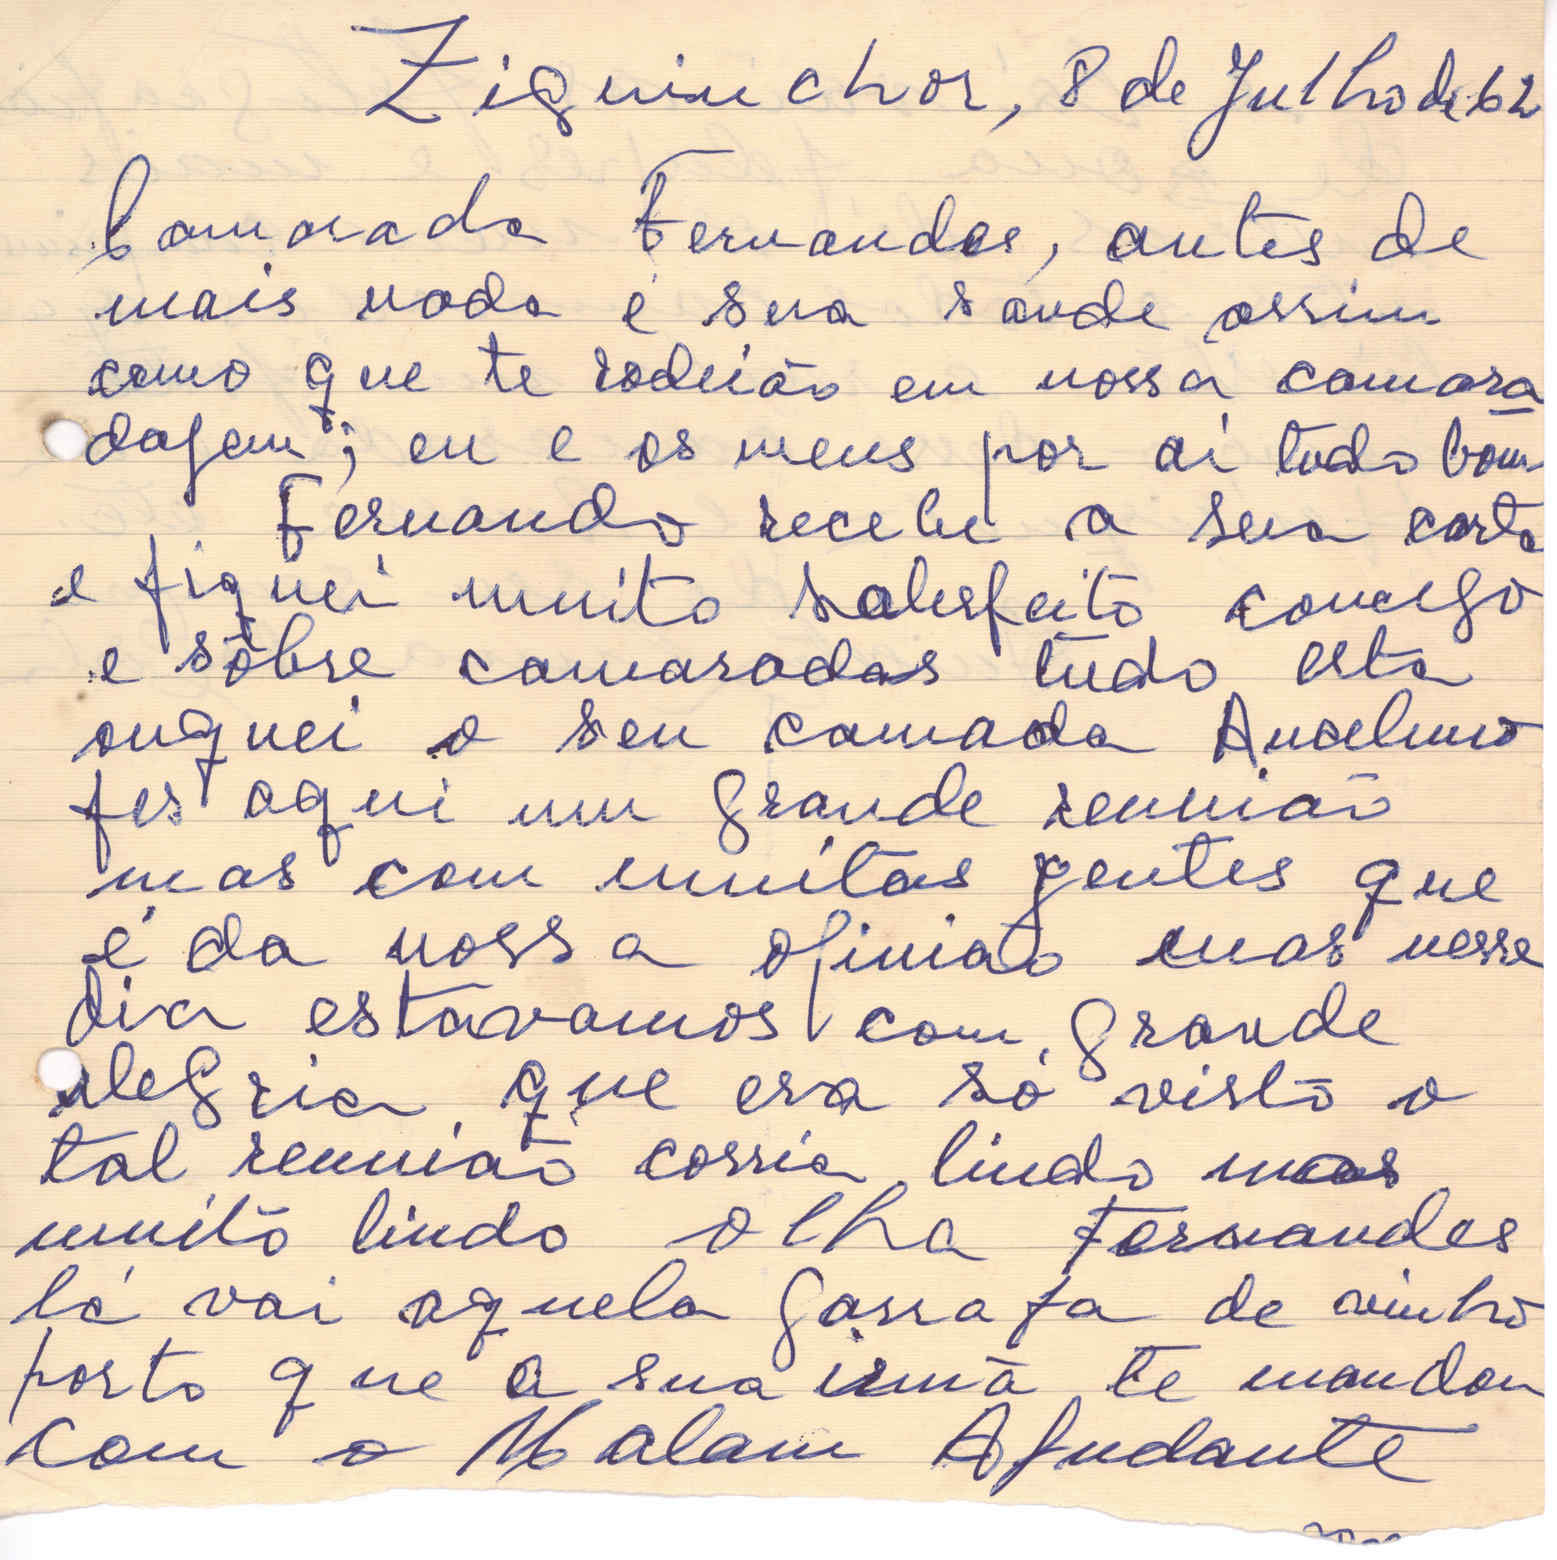 Ziguinchor, 8 de Julho de 62
Camarada Fernandes, antes de
mais nada é sua saude assim
como que te rodeião em nossa camara
dagem; eu e os meus por ai tudo bom
Fernando recebe a sua carta
e fiquei muito satesfeito comego
e sôbre camaradas tudo esta
ouquei o seu camada Ancelmo
fes aqui um grande reunião
mas com muitas gentes que
é da nossa opinião mas nesse
dia estavamos com grande
alegria que era só visto o
tal reunião corria lindo mas
muito lindo olha Fernandes
lá vai aquela garrafa de vinho
porto que a sua irmã te mandou
com o Malam Ajudante